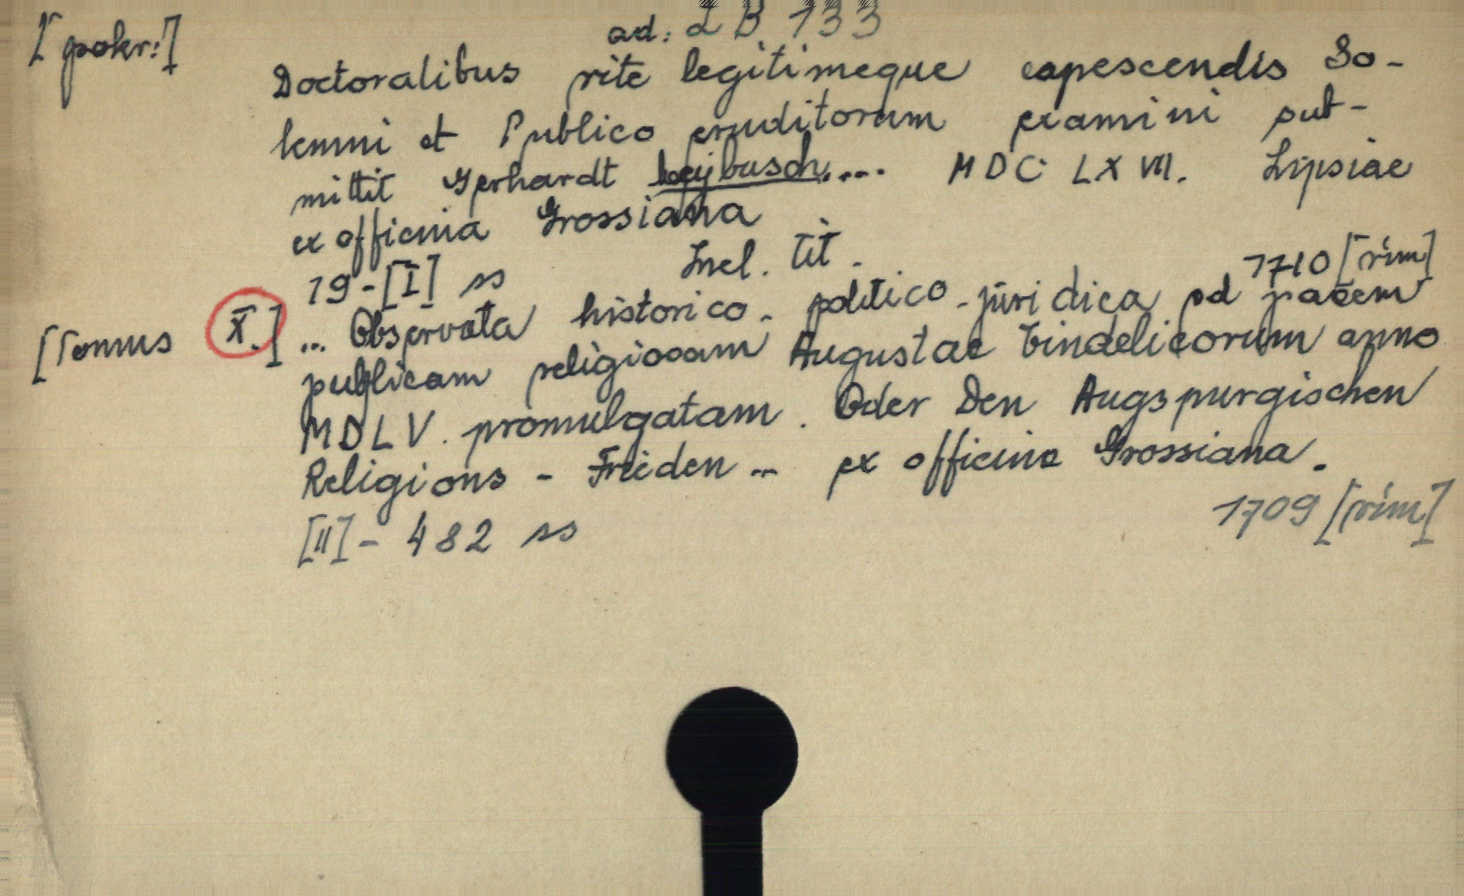 [pokr:]
ad: 2 B 133
Doctoralibus rite legitimeque capescendis So-
lemni et Publico eruditorum examini sub-
mittit Gerhardt Leybusch.... MDC LXVII. Lipsiae
ex officina Grossiana
19-[I] ss Incl. tit. 1710 [rim]
[Tomus X.] ... Observata historico-politico-juridica ad pacem
publicam religiosam Augustae Vindelicorum anno
MDLV. promulgatam. Oder Den Augspurgischen
Religions - Frieden... ex officina Grossiana.
[II] - 482 ss 1709 [rim]